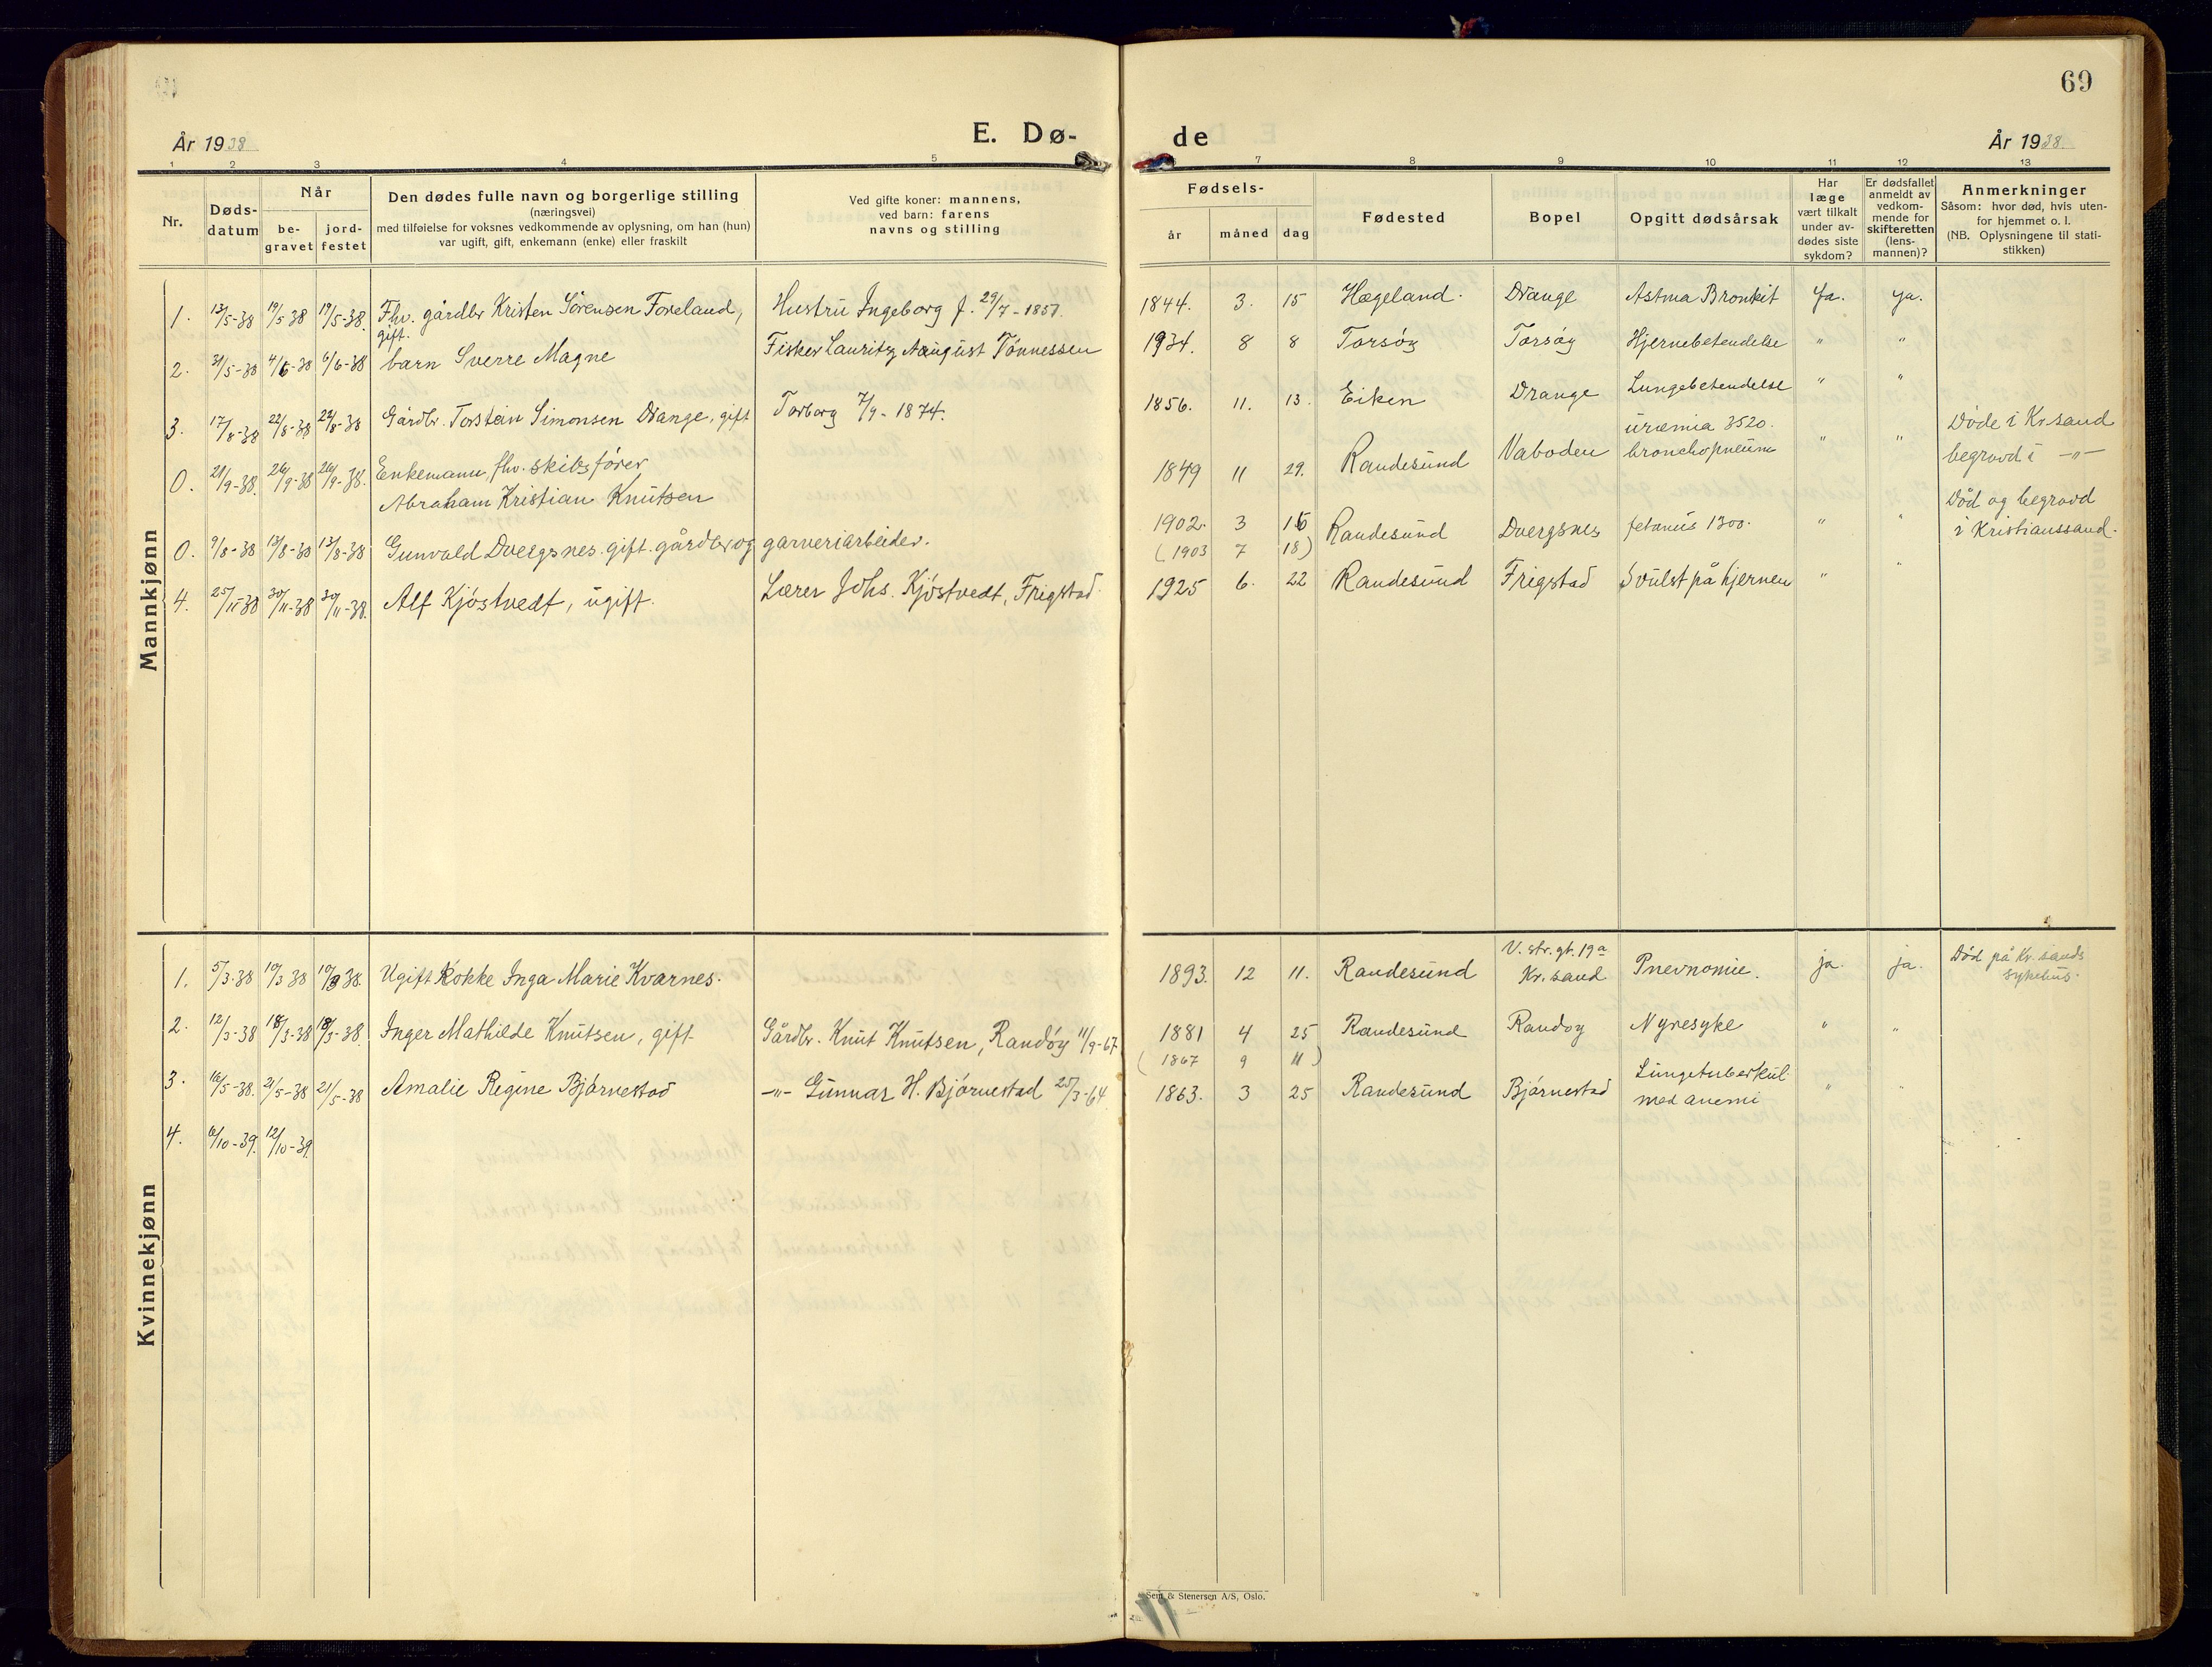 69
År 1938
E. Dø-
de
År 1938.
1 2 3 4 5 7 8 9 10 11 12 13
Nr.
Døds-
datum
Når
be-
gravet
jord-
festet
Den dødes fulle navn og borgerlige stilling
(næringsvei)
med tilføielse for voksnes vedkommende av oplysning, om han (hun)
var ugift, gift, enkemann (enke) eller fraskilt
Ved gifte koner: mannens,
ved barn: farens
navns og stilling
Fødsels-
år måned dag
Fødested
Bopel
Opgitt dødsårsak
Har
læge
vært tilkalt
under av-
dødes siste
sykdom?
Er dødsfallet
anmeldt av
vedkom-
mende for
skifteretten
(lens-
mannen)?
Anmerkninger
Såsom: hvor død, hvis uten-
for hjemmet o. l.
(NB. Oplysningene til stati-
stikken)
Mannkjønn
1. 13/5-38 19/5 38 19/5-38. Fhv. gårdbr Kristen Sørensen Foreland, Hustru Ingeborg f. 29/7-1857. 1844. 3. 15 Hægeland. Drange Astma Bronkit Ja. ja.
gift.
2. 31/5-38 4/6-38 6/6-38 barn Sverre Magne Fisker Lauritz August Tønnessen 1934. 8 8 Torsøy Torsøy Hjernebetendelse " "
3. 17/8-38 22/8-38 22/8-38 Gårdbr. Torstein Simonsen Drange, gift Torborg 7/9-1874. 1856. 11. 13. Eiken Drange Lungebetendelse " "
0. 21/9-38. 26/9-38 26/9-38. Enkemann, fhv. skibsfører
Abraham Kristian Knutsen 1849 11 29. Randesund Vaboden uræmia 3520.
bronchopneum " " Døde i Kr.sand
begravd i -"-
0. 9/8-38 13/8-38 13/8-38 Gunvald Dvergsnes. gift. gårdbr og garveriarbeider. 1902. 3 16 Randesund Dvergsnes tetanus 1300. " " Død og begravd
i Kristianssand.
(1903 7 18)
4. 25/11-38 30/11-38 30/11-38. Alf Kjøstvedt, ugift. Lærer Johs. Kjøstvedt, Frigstad. 1925 6. 22 Randesund Frigstad Svulst på hjernen " "
Kvinnekjønn
1. 5/3-38 10/3 38 10/3 38. Ugift kokke Inga Marie Kvarnes. 1893. 12 11. Randesund V. str. gt. 19a
Kr. sand Pnevnomie. ja. ja. Død på Kr. sands
sykehus.
2. 12/3-38 18/3-38 18/3-38. Inger Mathilde Knutsen, gift Gårdbr. Knut Knutsen, Randøy 11/9-67 1881 4 25 Randesund Randøy Nyresyke " "
(1867 9 11)
3. 16/5-38. 21/5-38 21/5-38 Amalie Regine Bjørnestad -"- Gunnar H. Bjørnestad 25/3-64. 1863. 3 25 Randesund Bjørnestad Lungetuberkul.
med anemi " "
4. 6/10-39. 12/10-39.
Sem & Stenersen A/S, Oslo.